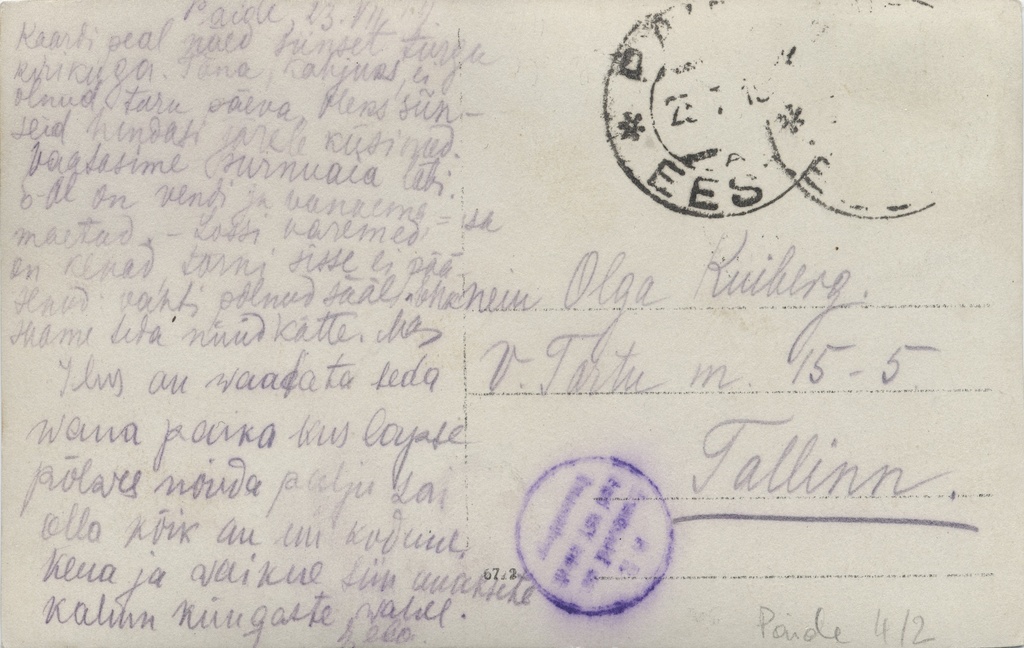 Paide, 23. VII
Kaardi peal näed siinset turgu
kirikuga. Täna, kahjuks, ei
olnud turu päeva, oleks siin-
seid hindasi järele küsinud.
Vaatasime surnuaia läbi.
S-al on vendi ja vanaema
maetud. - Lossi varemed
on kenad, torni sisse ei pää-
senud, vahti polnud sääl.
saame seda nüüd kätte.
Ilus on waadata seda
wana paika kus lapse
põlves nõnda palju sai
olla kõik on nii kodune,
kena ja waikne siin
kalmu küngaste wahel.
EES
23
E
Olga Kuiberg.
V. Tartu m. 15-5.
Tallinn.
67.2
Paide 4/2